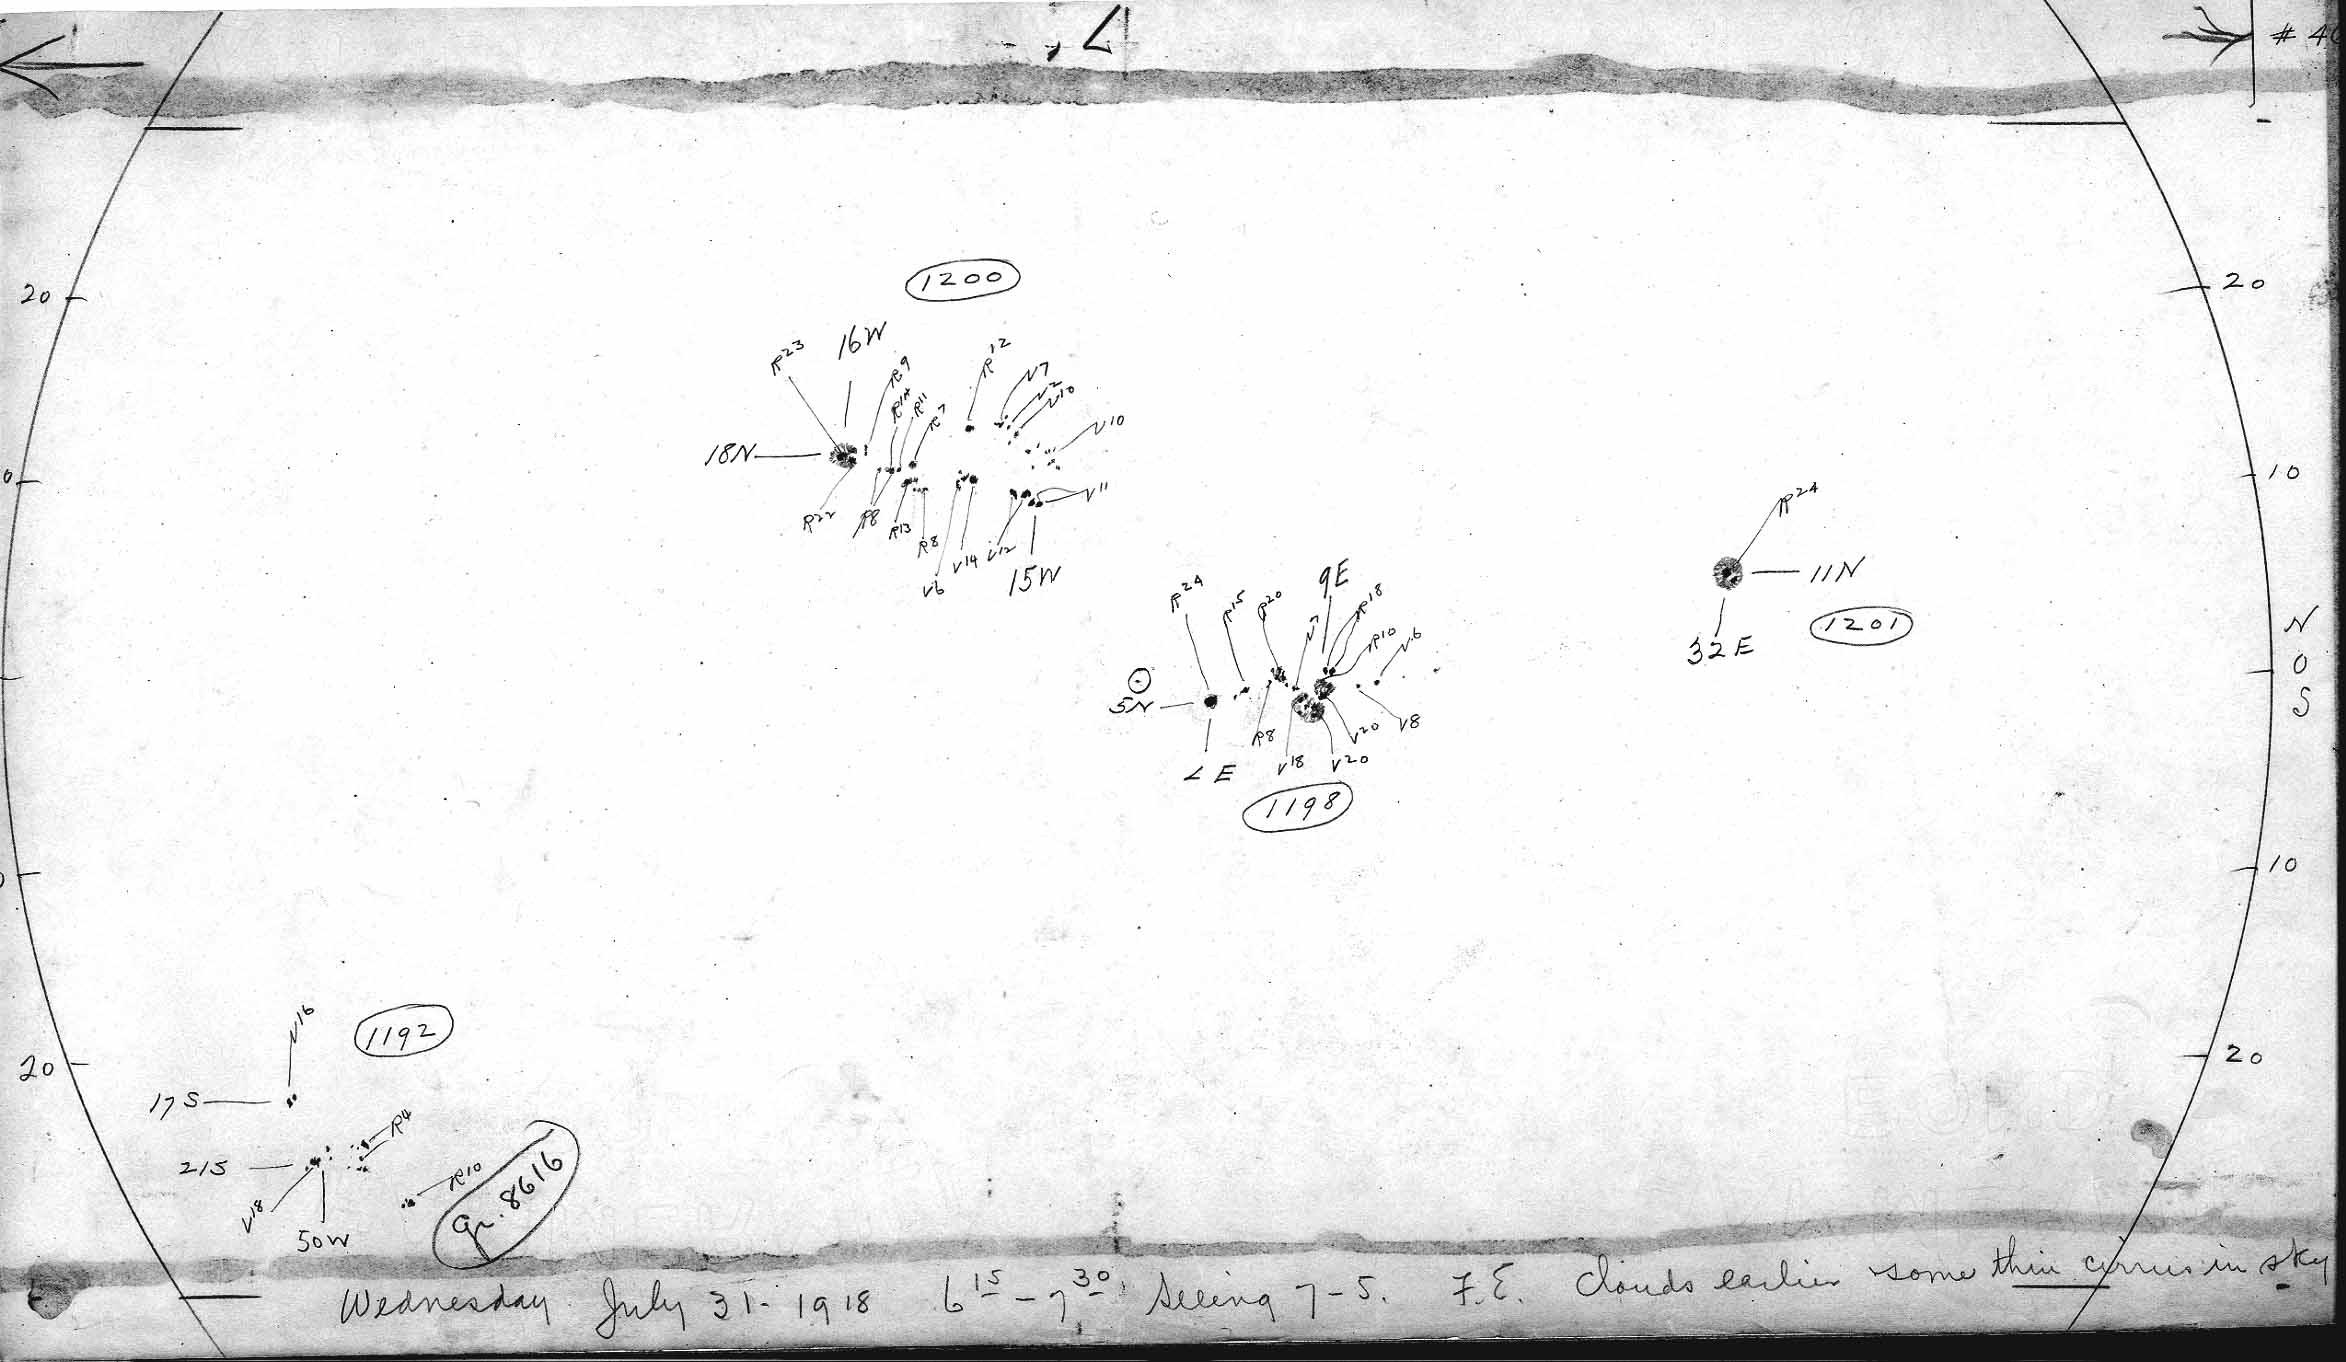 # 40
20
20
1200
R23
16W
R9
R14
R11
R7
R12
V7
V2
V10
V10
18N
R22
R8
R13
R8
V6
V14
V12
V11
15W
0
10
R24
11N
1201
32E
N
0
S
R24
R15
R20
9E
V7
R18
R10
V6
5N
R8
V18
V20
V20
V8
E
1198
10
20
20
V16
1192
17S
R4
21S
R10
V18
50W
gr. 8616
Wednesday July 31 - 1918 6 15 - 7 30 Seeing 7-5. F.E. Clouds earlier some thin cirrus in sky